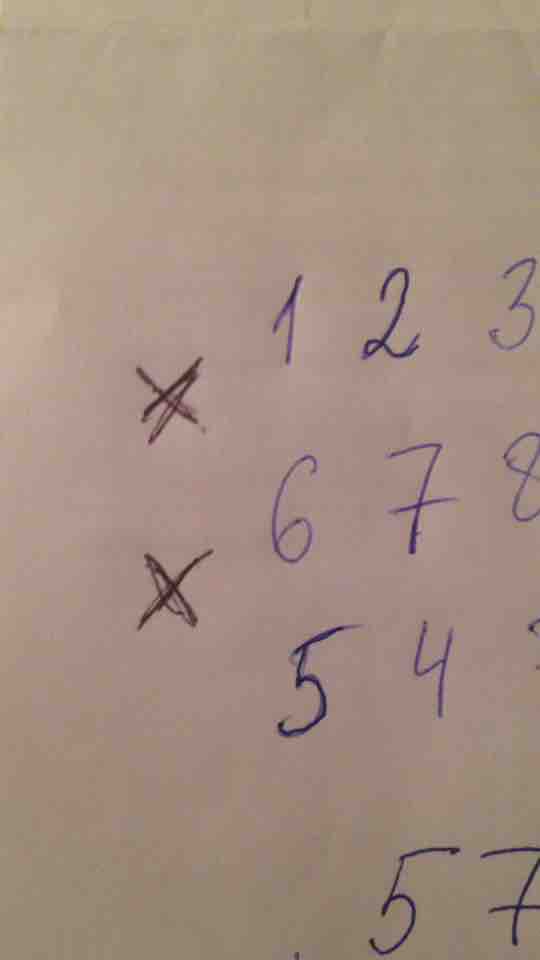 1 2 3
×
6 7 8
×
5 4
5 7